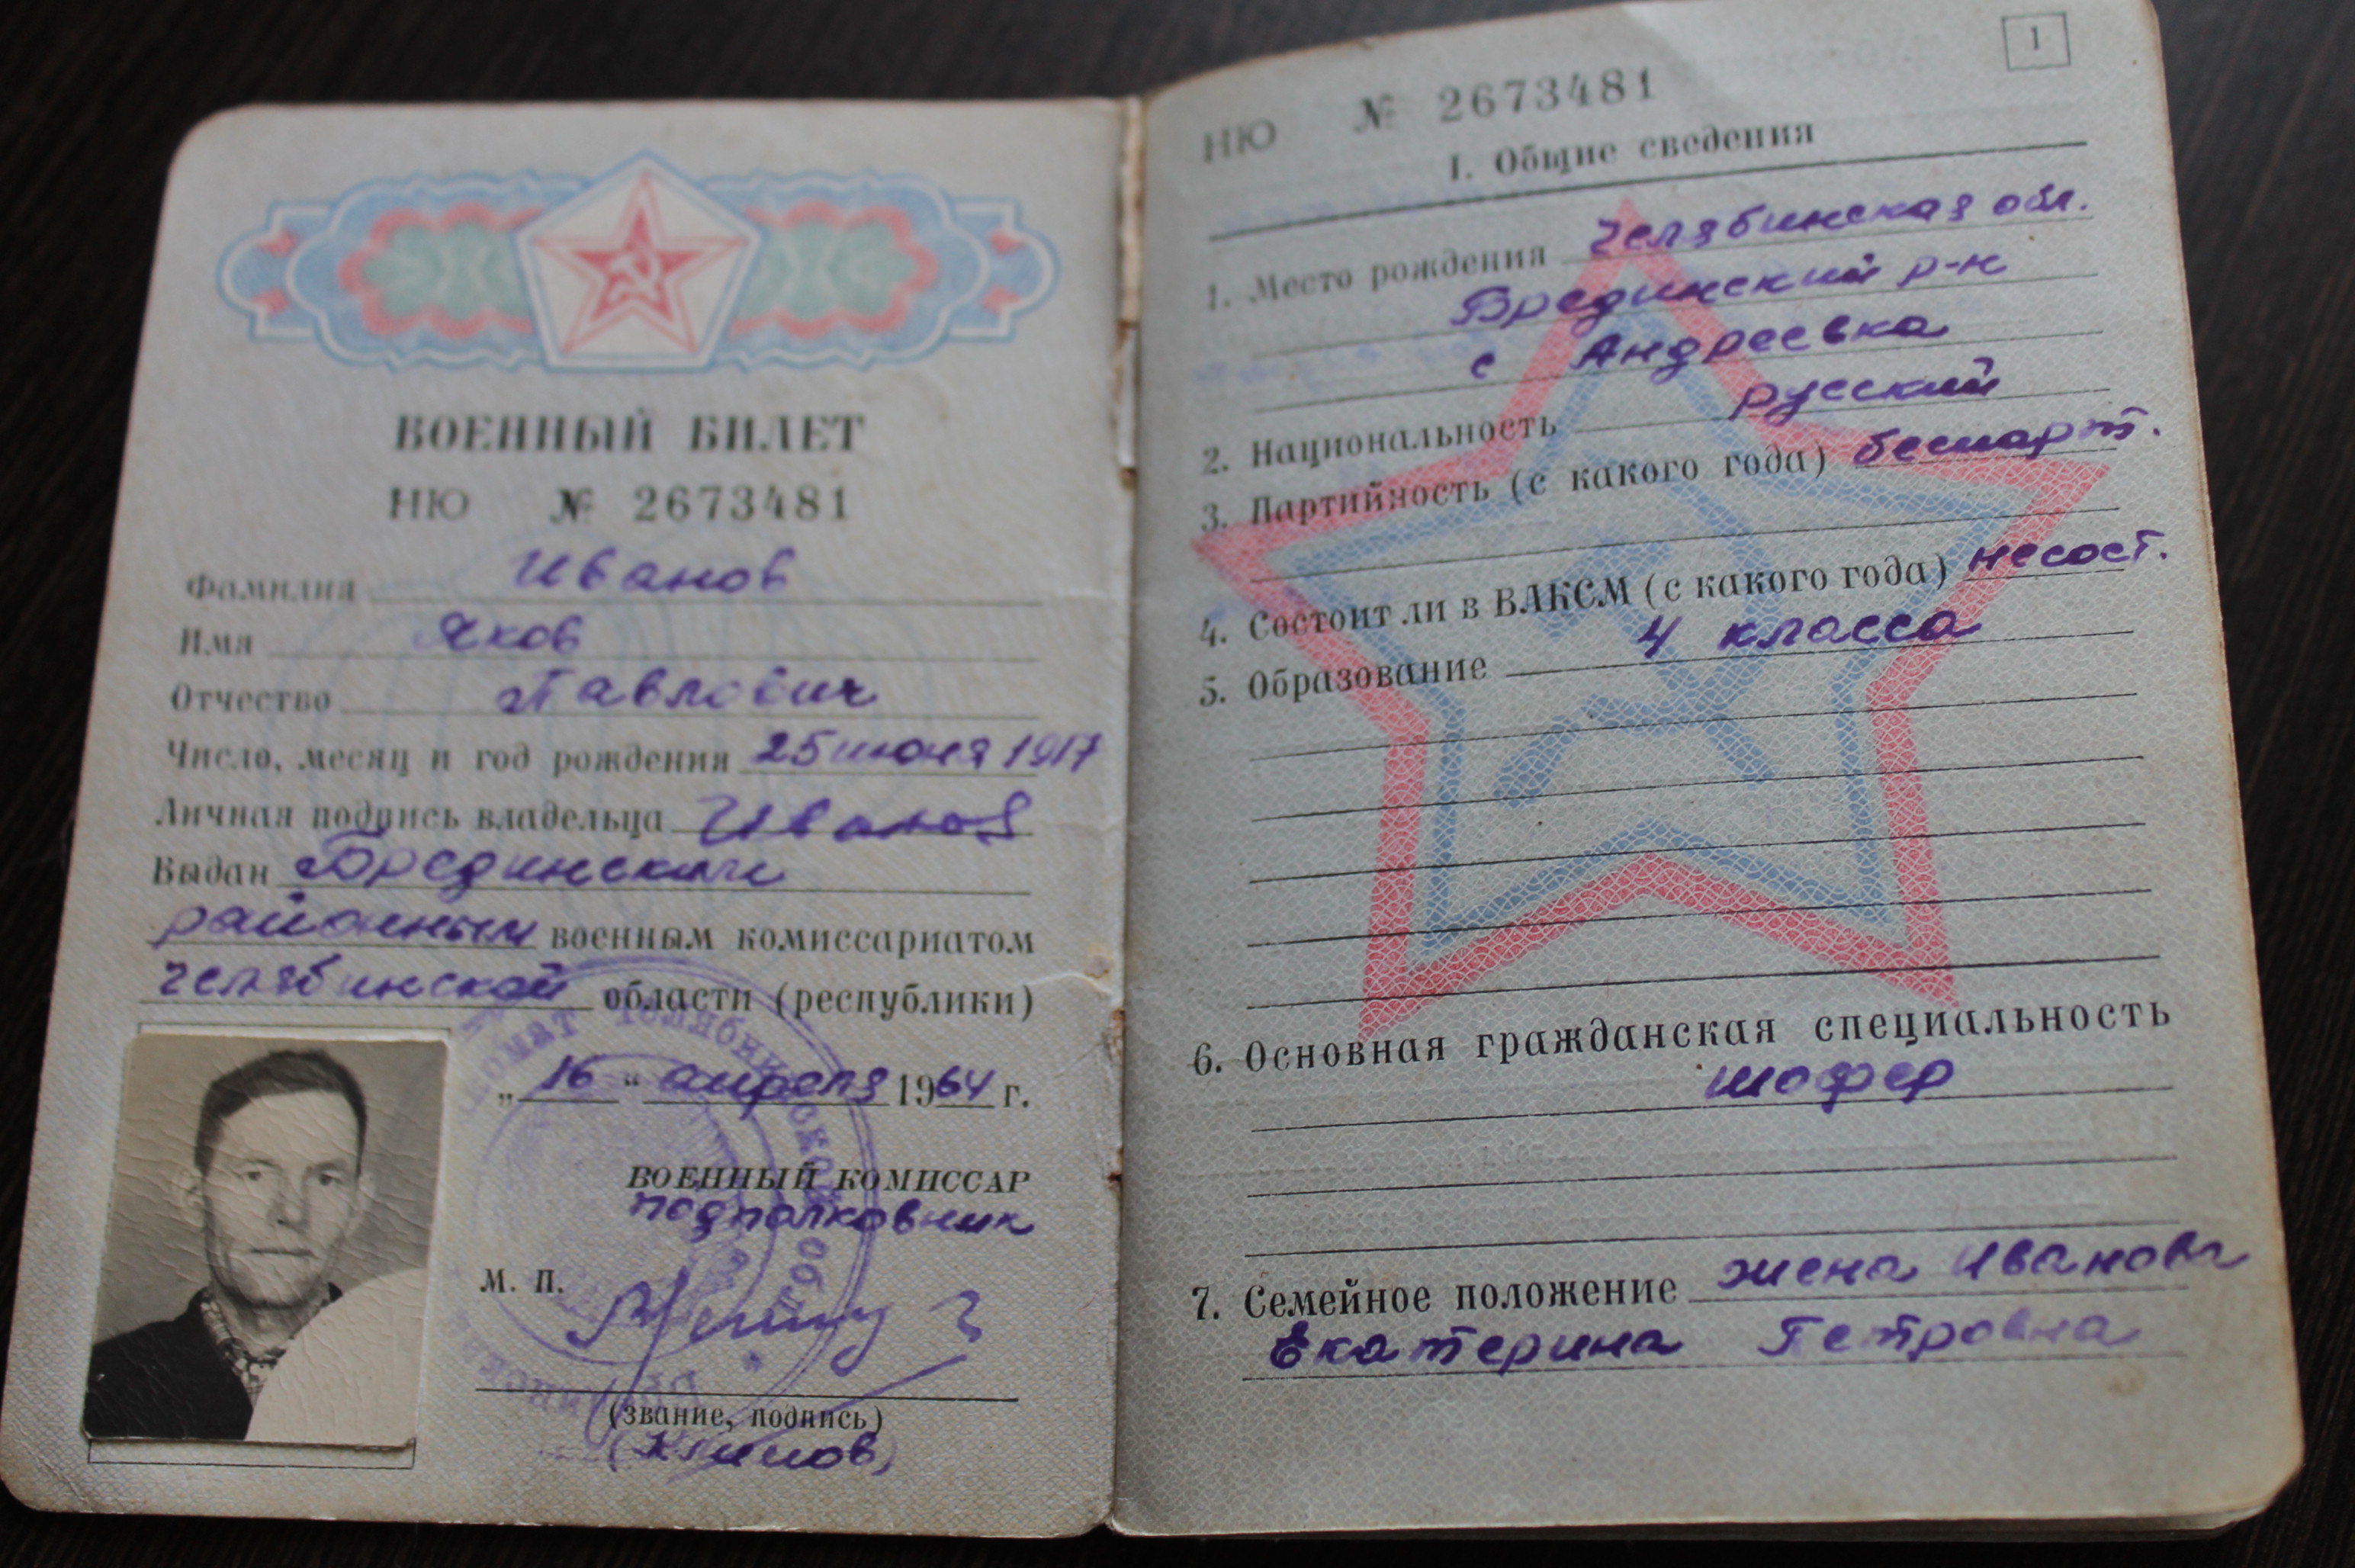 ВОЕННЫЙ БИЛЕТ
НЮ № 2673481
Фамилия Иванов
Имя Яков
Отчество Павлович
Число, месяц и год рождения 25 июня 1917
Личная подпись владельца Иванов
Выдан Брединским
районным военным комиссариатом
Челябинской области (республики)
„16“ апреля 1964 г.
ВОЕННЫЙ КОМИССАР
подполковник
М. П.
(звание, подпись)
(Климов)
1
НЮ № 2673481
I. Общие сведения
1. Место рождения Челябинская обл.
Брединский р-н
с Андреевка
2. Национальность русский
3. Партийность (с какого года) беспарт.
4. Состоит ли в ВЛКСМ (с какого года) несост.
5. Образование 4 класса
6. Основная гражданская специальность
шофер
7. Семейное положение жена Иванова
Екатерина Петровна